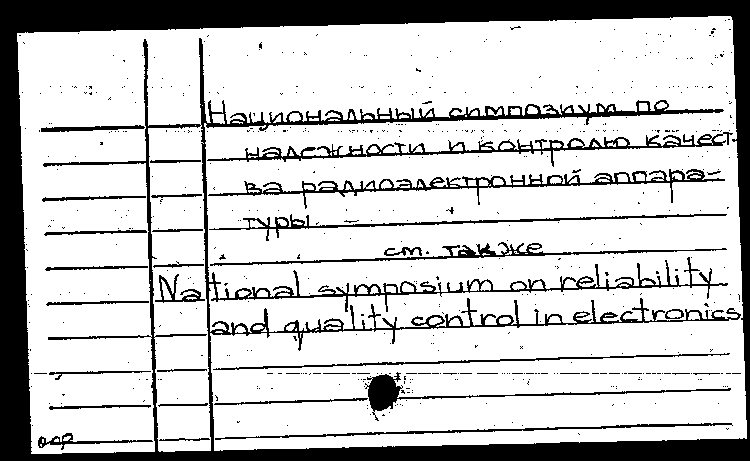 Национальный симпозиум по
надежности и контролю качест-
ва радиоэлектронной аппара-
туры
см. также
National symposium on reliability
and quality control in electronics